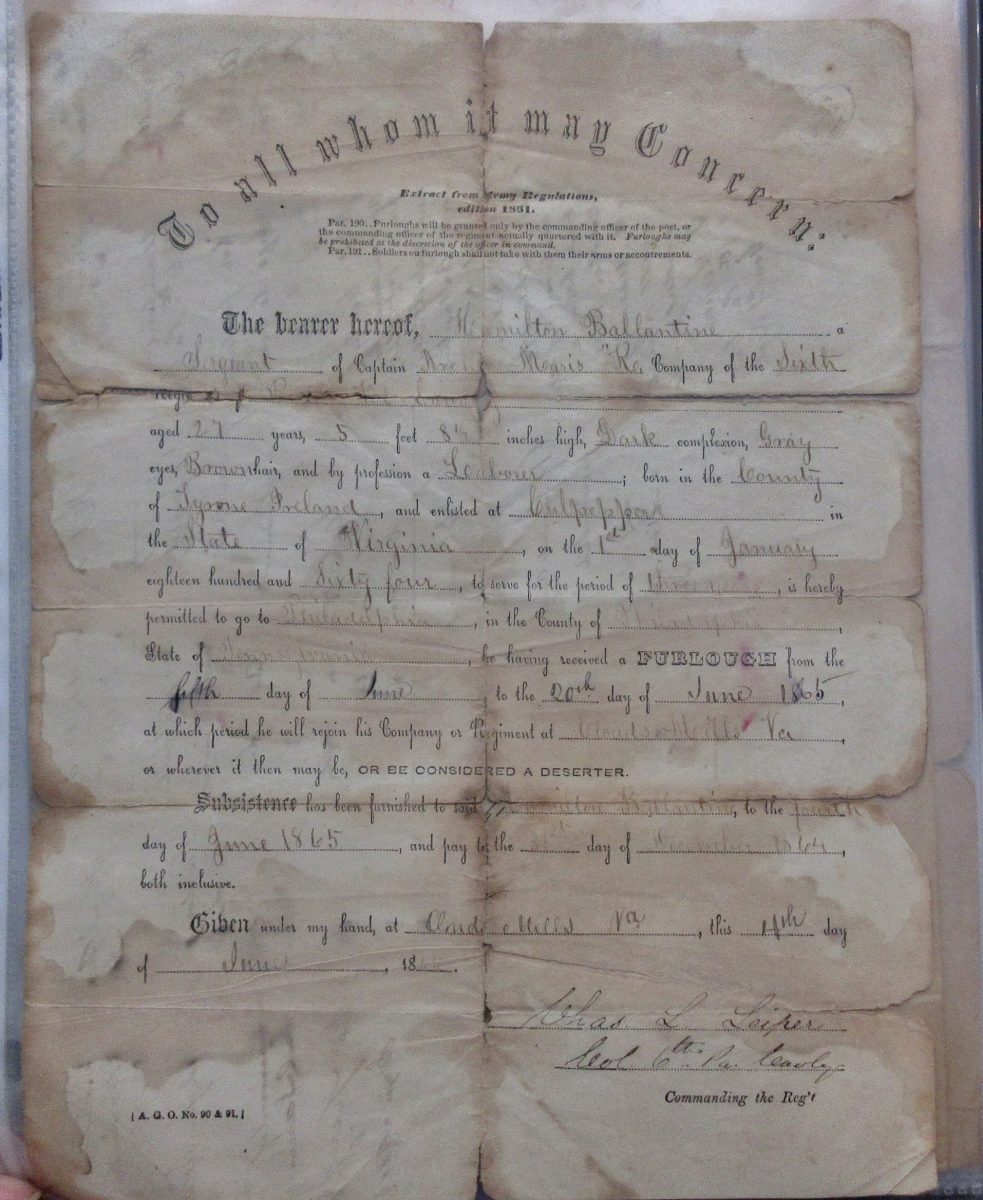 To all whom it may Concern:
Extract from Army Regulations,
edition 1861.
Par. 190.. Furloughs will be granted only by the commanding officer of the post, or
the commanding officer of the regiment actually quartered with it. Furloughs may
be prohibited at the discretion of the officer in command.
Par. 191.. Soldiers on furlough shall not take with them their arms or accoutrements.
The bearer hereof, Hamilton Ballantine a
Sergeant of Captain Mearis Company of the Sixth
aged 27 years, 5 feet inches high, Dark complexion, Gray
eyes, Brown hair, and by profession a Leaborer ; born in the County
of Tyrone Ireland , and enlisted at Culpepper in
the State of Virginia , on the 1st day of January
eighteen hundred and Sixty four , to serve for the period of three years , is hereby
permitted to go to Philadelphia , in the County of Philadelphia ,
State of Pennsylvania , he having received a FURLOUGH from the
fifth day of June to the 20th day of June 1865 ,
at which period he will rejoin his Company or Regiment at Clouds Mills Va ,
or wherever it then may be, OR BE CONSIDERED A DESERTER.
Subsistence has been furnished to said Hamilton Ballantine, to the fourth
day of June 1865 , and pay to the 31st day of December 1864 ,
both inclusive.
Given under my hand, at Clouds Mills Va , this 4th day
of June , 18 .
Chas. L Leiper
Col. 6th Pa. Cavly
Commanding the Reg't
[ A. G. O. No. 90 & 91. ]